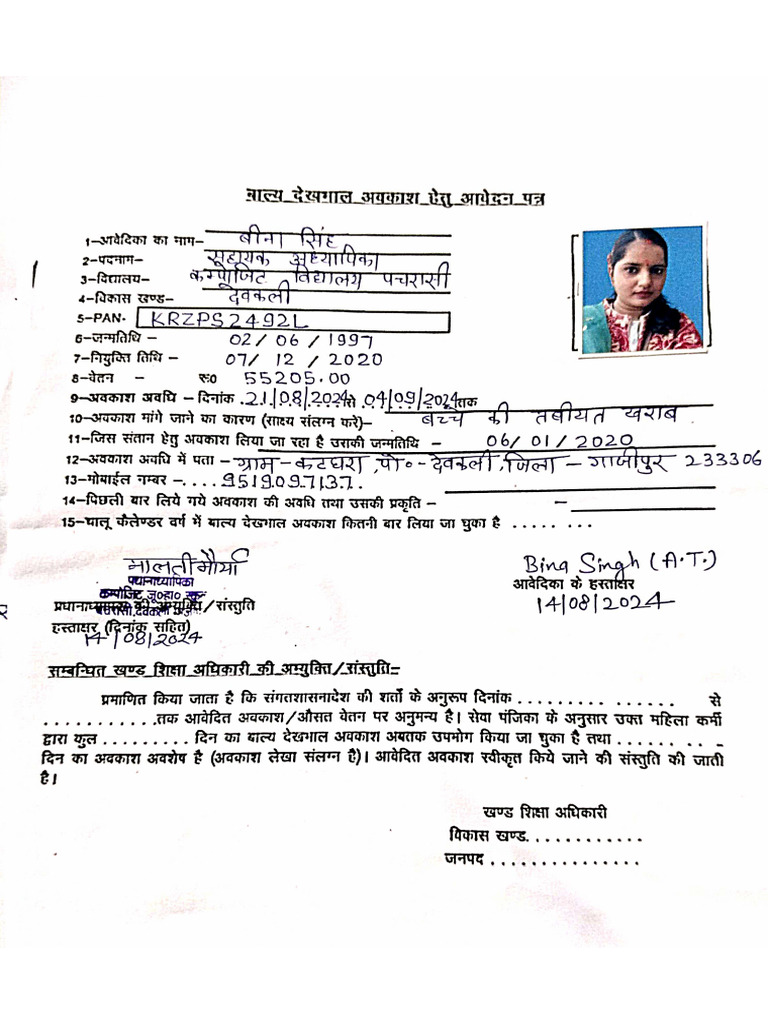 बाल्य देखभाल अवकाश हेतु आवेदन पत्र
1-आवेदिका का नाम- बीना सिंह
2-पदनाम- सहायक अध्यापिका
3-विद्यालय- कम्पोजिट विद्यालय पचरासी
4-विकास खण्ड- देवकली
5-PAN- KRZPS2492L
6-जन्मतिथि - 02/06/1997
7-नियुक्ति तिथि - 07/12/2020
8-वेतन - रू0 55205.00
9-अवकाश अवधि - दिनांक .21/08/2024 से 04/09/2024 तक
10-अवकाश मांगे जाने का कारण (साक्ष्य संलग्न करे) - बच्चे की तबीयत खराब.
11-जिस संतान हेतु अवकाश लिया जा रहा है उसकी जन्मतिथि - 06/01/2020
12-अवकाश अवधि में पता - ग्राम-कटघरा, पो०-देवकली, जिला-गाजीपुर 233306
13-मोबाईल नम्बर -....9519097137.
14-पिछली बार लिये गये अवकाश की अवधि तथा उसकी प्रकृति - -
15-चालू कैलेण्डर वर्ष में बाल्य देखभाल अवकाश कितनी बार लिया जा चुका है ..... ...
मालती मौर्या
Bina Singh (A.T.)
प्रधानाध्यापिका
आवेदिका के हस्ताक्षर
कम्पोजिट
14/08/2024
प्रधानाध्यापक की अभ्युक्ति/संस्तुति
हस्ताक्षर (दिनांक सहित)
14/08/2024
सम्बन्धित खण्ड शिक्षा अधिकारी की अभ्युक्ति/संस्तुति-
प्रमाणित किया जाता है कि संगतशासनादेश की शर्तो के अनुरूप दिनांक ......... ...... से
...........तक आवेदित अवकाश/औसत वेतन पर अनुमन्य है। सेवा पंजिका के अनुसार उक्त महिला कर्मी
द्वारा कुल ......... दिन का बाल्य देखभाल अवकाश अबतक उपभोग किया जा चुका है तथा ..........
दिन का अवकाश अवशेष है (अवकाश लेखा संलग्न है)। आवेदित अवकाश स्वीकृत किये जाने की संस्तुति की जाती
है।
खण्ड शिक्षा अधिकारी
विकास खण्ड............
जनपद ................